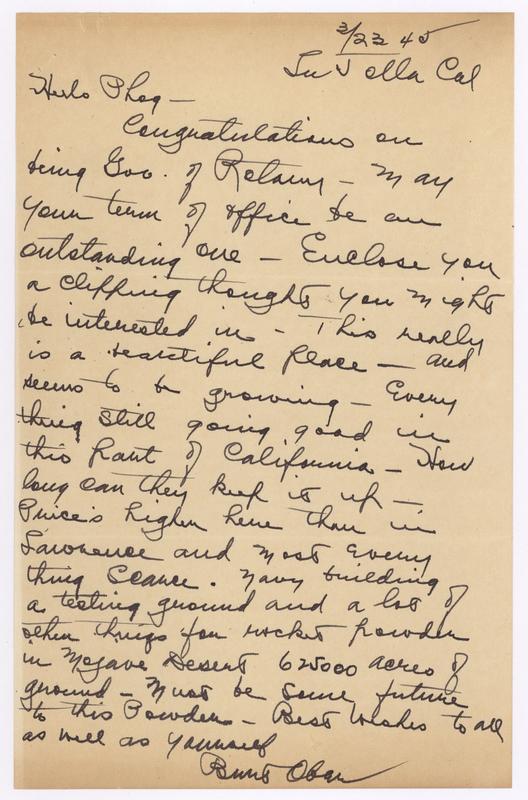 3/23 45
La Jolla Cal
Hello Phog —
Congratulations on
being Gov. of Rotary — May
your term of office be an
outstanding one — Enclose you
a clipping thought you might
be interested in — This really
is a beautiful place — and
seems to be growing — Every
thing still going good in
this part of California — How
long can they keep it up —
Price's higher here than in
Lawrence and most every
thing Scarce. Navy building
a testing ground and a lot of
other things for rocket powder
in Mojave Desert 625000 acres of
ground — Must be some future
to this Powder — Best wishes to all
as well as yourself